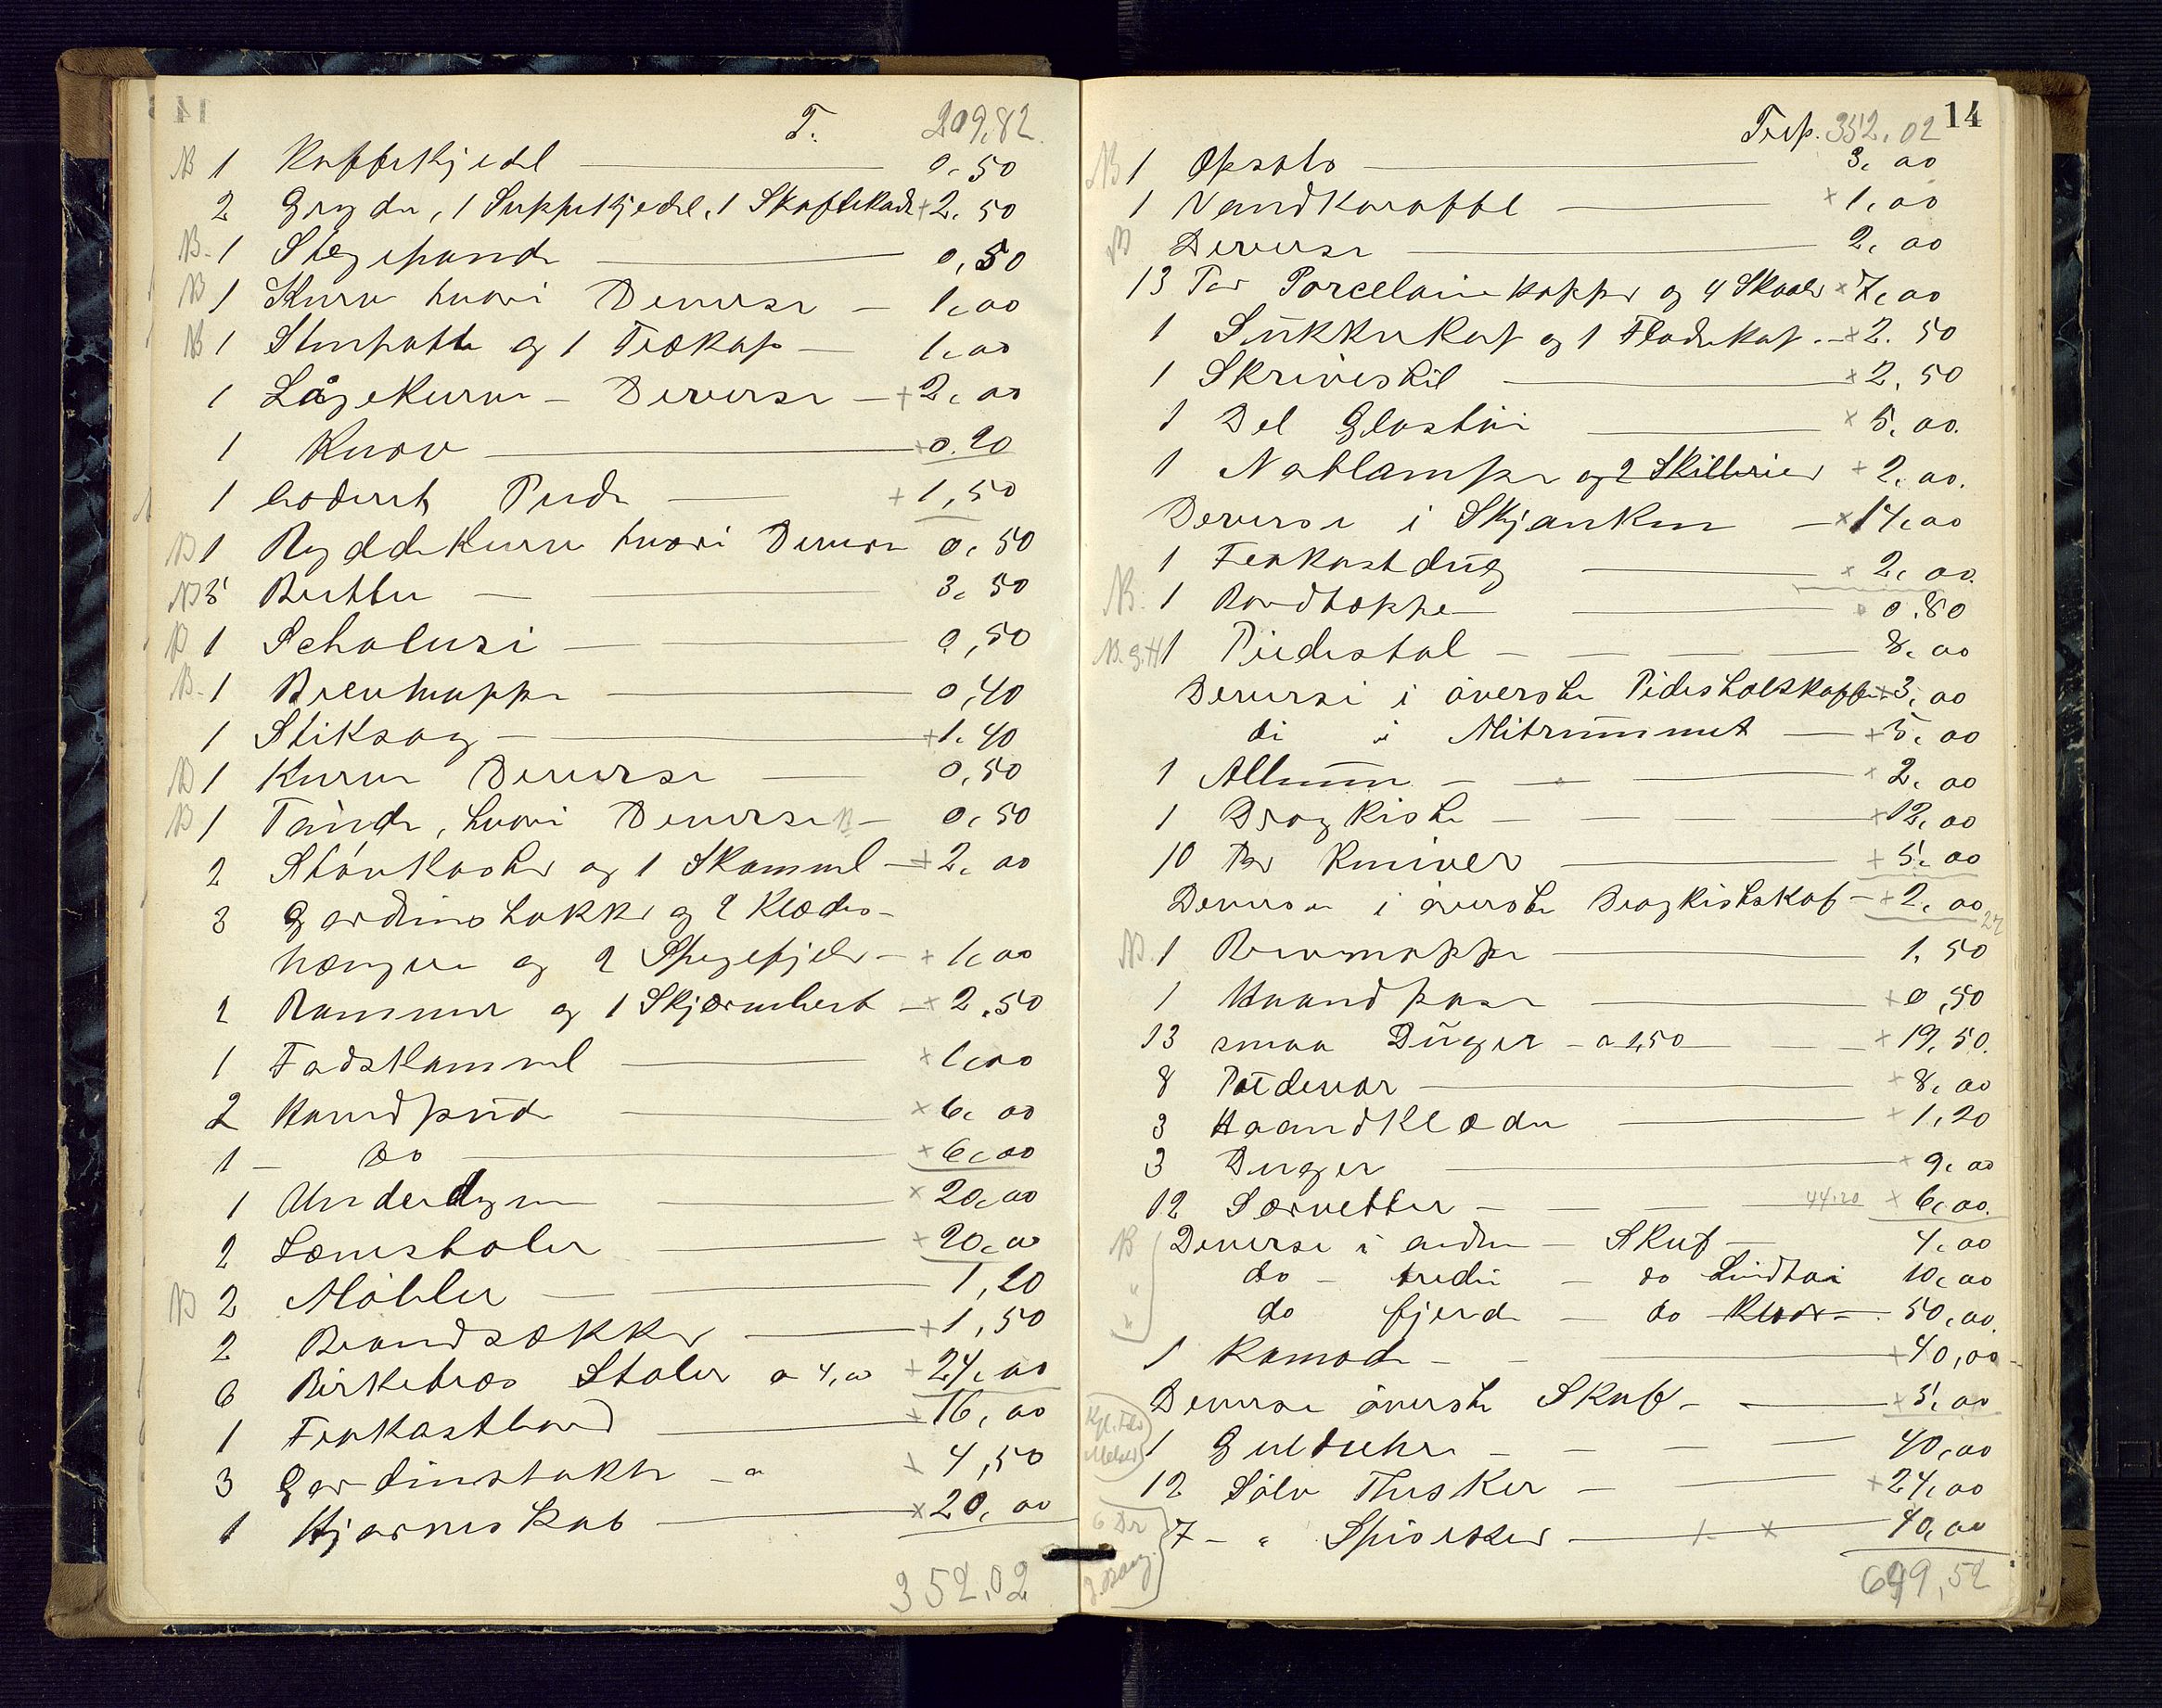 T. 209,82
B 1 Kaffekjedel 0,50
2 Gryder, 1 Suppekjedel, 1 Skaftekade + 2,50
B. 1 Stegepande 0,50
B 1 Kurv hvori Deverse 1,00
B 1 Stenpotte og 1 Trækop 1,00
1 Lågekurv - Deverse + 2,00
1 Kurv + 0.20
1 Pude + 1,50
B 1 Ryddekurv hvori Deverse 0,50
B 5 Butter 3,50
B 1 0,50
B. 1 Brevmappe 0,40
1 Stiksag + 1.40
B 1 Kurv Deverse 0,50
B 1 Tønde, hvori Deverse B 0,50
2 Støvkoster og 1 Skammel + 2,00
3 Gardinstokke og 2 Klædes-
hængere og 2 + 1,00
2 Rammer og 1 Skjærebret + 2.50
1 Fadskammel + 1,00
2 Hovedpude × 6,00
1 - Do × 6,00
1 Underdyne × 20,00
2 Lænestoler + 20,00
B 2 Møbler 1,20
2 Brandsække + 1,50
6 Birketræs Stoler a 4,00 + 24,00
1 Frokostbord + 16,00
3 Gardinstokke - a × 4,50
1 Hjørneskab × 20,00
352,02
14
Trsp. 352,02
B 1 Opsats 3,00
1 Vandkaraffel × 1,00
B Deverse 2,00
13 Par Porcelainekopper og 4 Skaaler × 7,00
1 Sukkerkop og 1 Flødekop × 2.50
1 Skrivestel × 2,50
1 Del Glastøi × 5,00.
1 Natlampe og 2 Skillerier + 2,00.
Deverse i Skjænken × 14,00
1 Frokostdug × 2,00.
B. 1 Bordtæppe 0.80
B. G. H 1 Piedestal 8,00
Deverse i øverste Pidestalskuffe + 3,00
di i Mitrummet + 5,00
1 Album × 2,00
1 Dragkiste + 12,00
10 Par Kniver + 5,00
Deverse i øverste Dragkistskuf + 2,00 24
B. 1 Brevmappe 1,50
1 Haandpose + 0,50
13 smaa Duger - a 1,50 + 19,50.
8 Putevar + 8,00
3 Haandklæder + 1,20
3 Duger + 9,00
12 Servetter 44,20 × 6,00.
B Deverse i anden - Skuf 4,00
" do - tredie - do Lindtøi 10,00
" do fjerde - do 50,00.
1 Komode + 40,00
Deverse øverste Skuf × 5,00
1 Guldur 40,00
12 Sølv Theskeer + 24,00
7 - " Spiseskeer × × 40,00
699,52